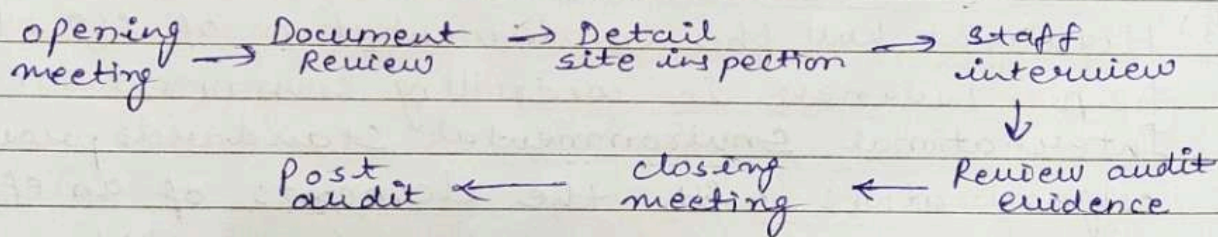 opening meeting → Document Review → Detail site inspection → staff interview
↓
Post audit ← closing meeting ← Review audit evidence